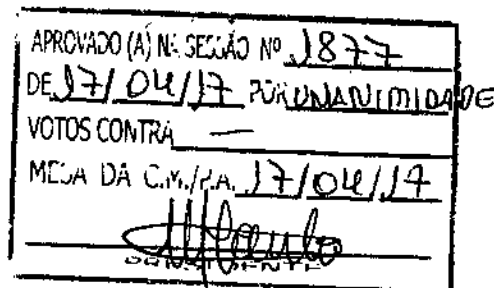 APROVADO (A) NA SESSÃO Nº 1877
DE 17/04/17 POR UNANIMIDADE
VOTOS CONTRA —
MESA DA C.M./P.A. 17/04/17
PRESIDENTE